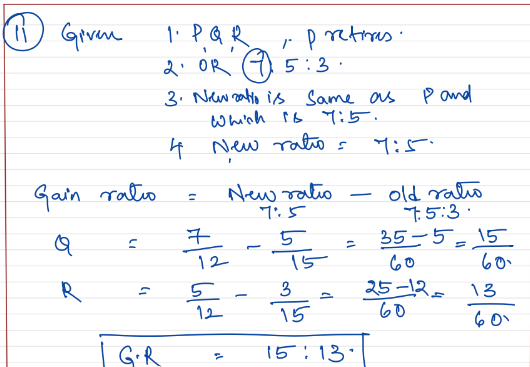 11 Given 1. P, Q, R, P retires.
2. OR 7 : 5 : 3.
3. New ratio is Same as P and
which is 7:5.
4 New ratio = 7:5.
Gain ratio = New ratio — old ratio
7:5 7:5:3.
Q = 7/12 - 5/15 = 35-5/60 = 15/60.
R = 5/12 - 3/15 = 25-12/60 = 13/60.
G.R = 15:13.